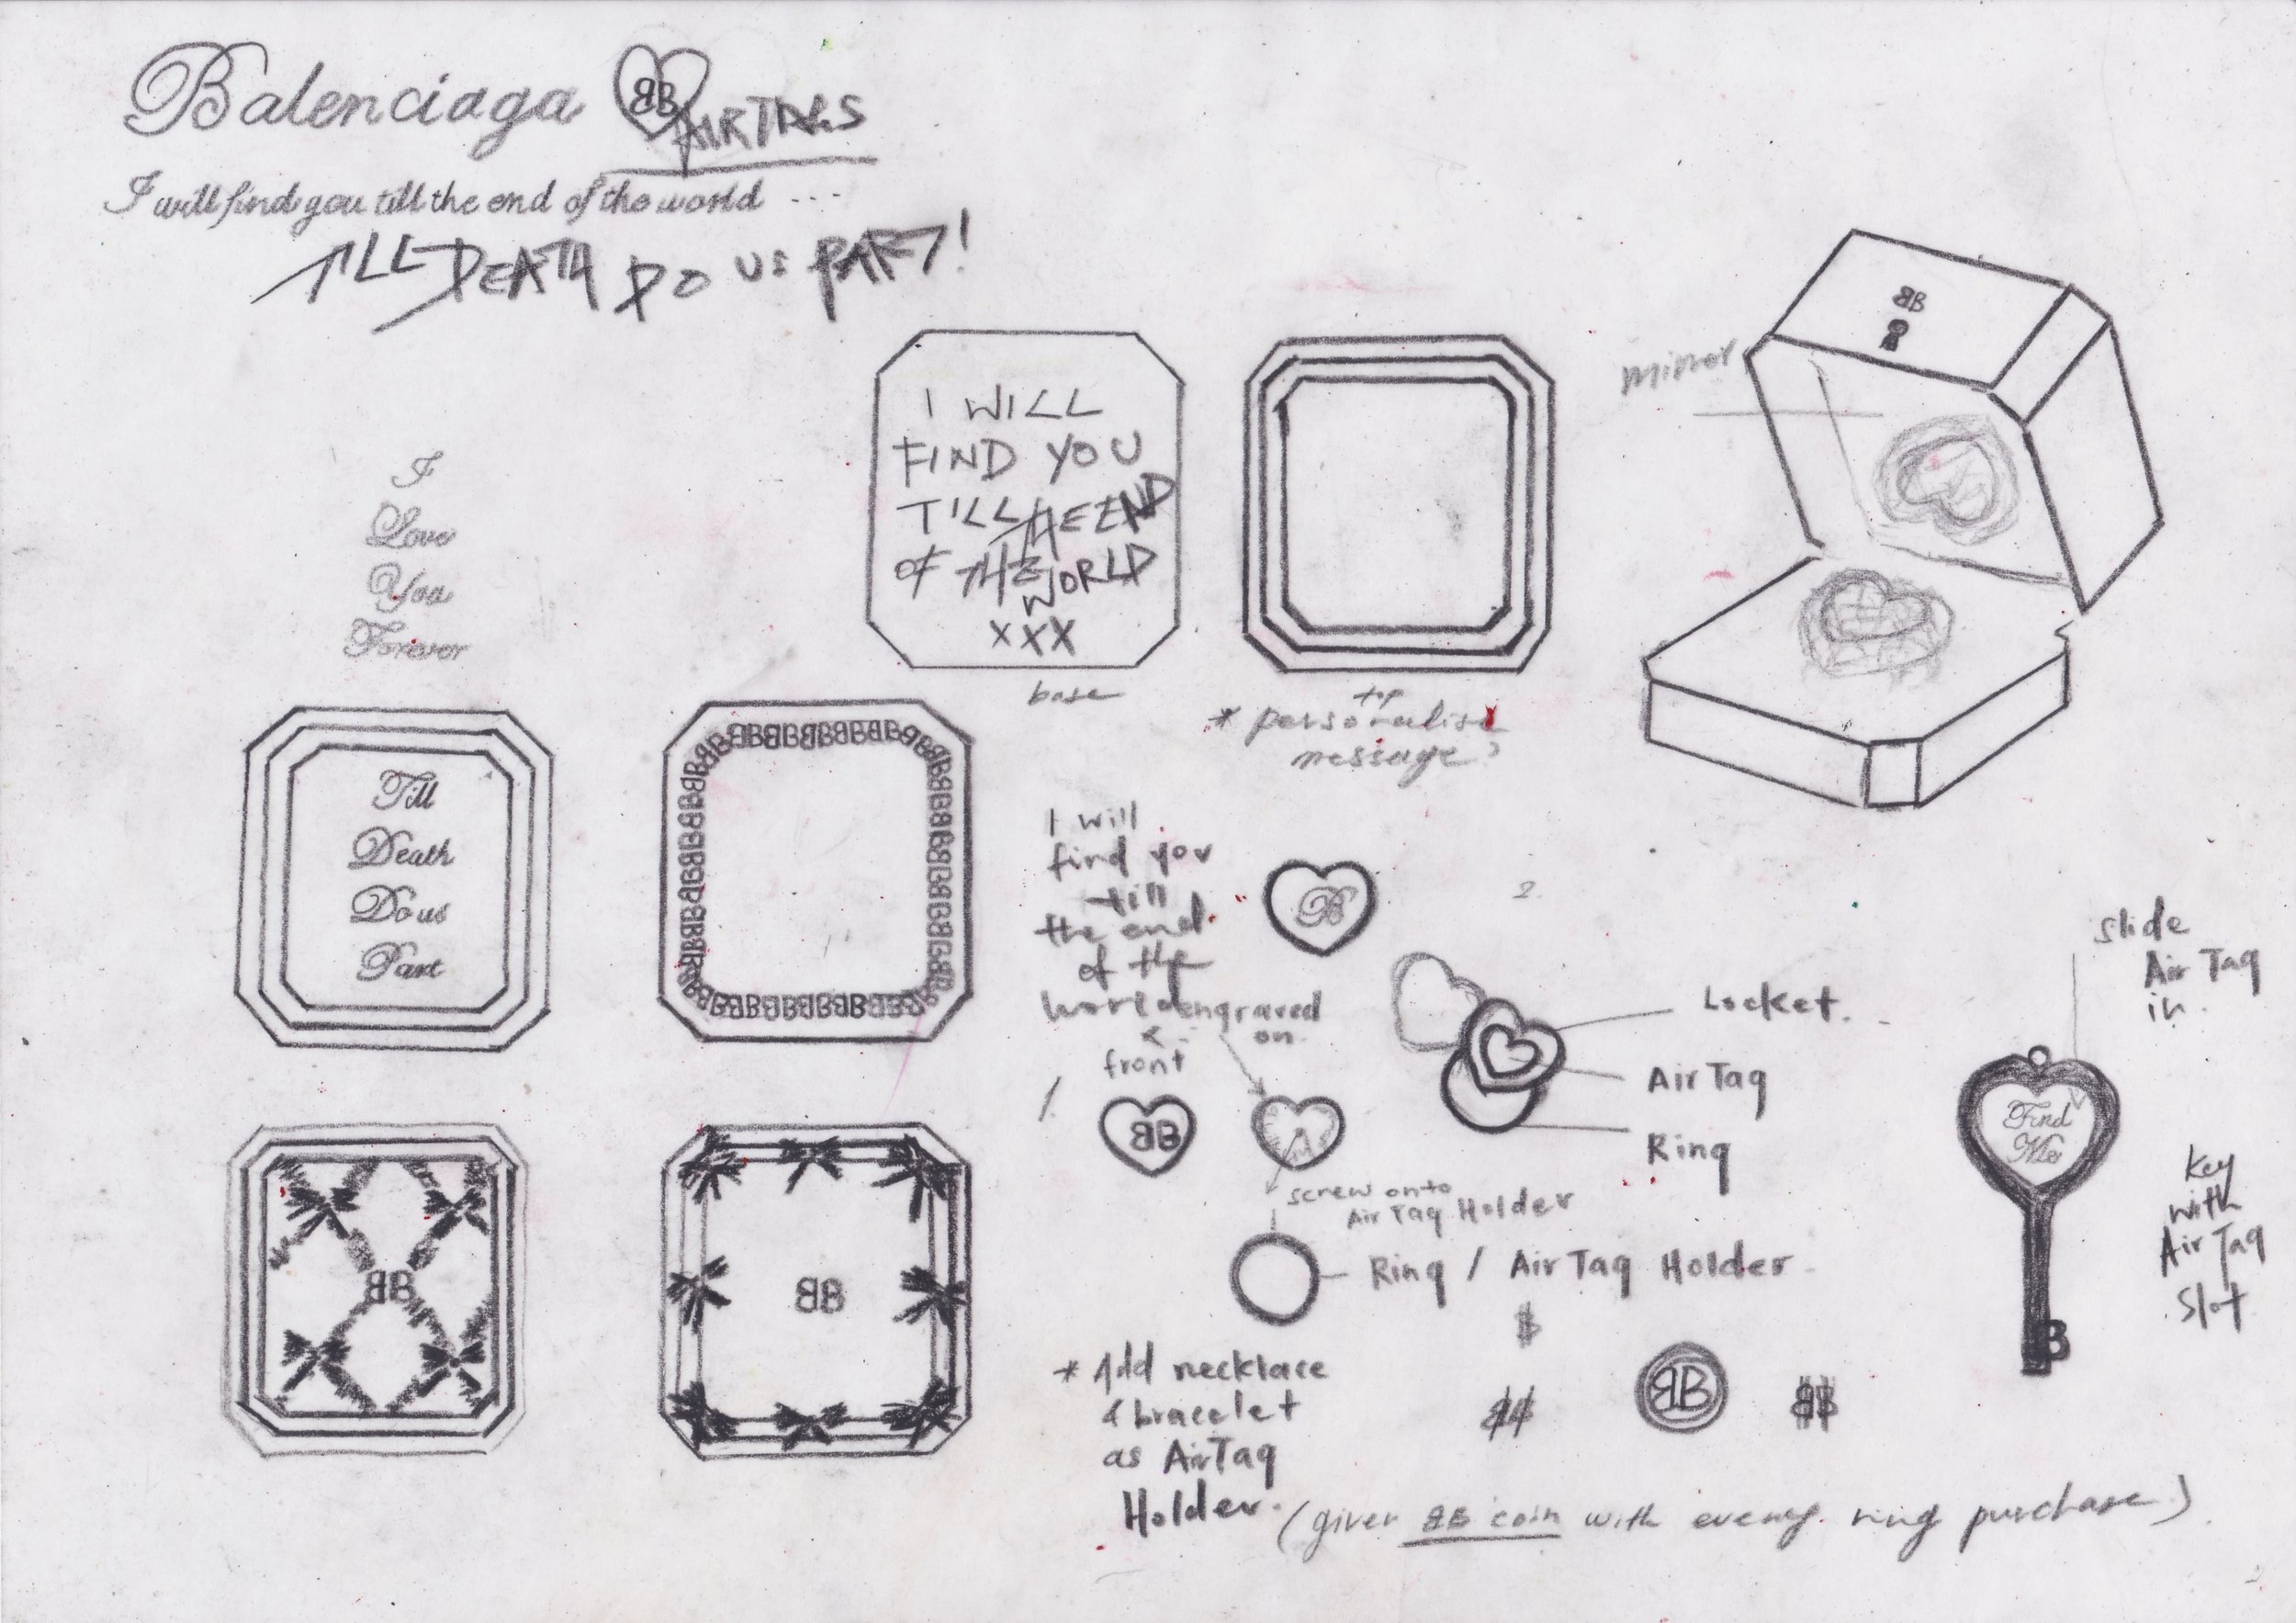 Balenciaga BB AIRTAGS
I will find you till the end of the world ...
TILL DEATH DO US PART!
I
Love
You
Forever
I WILL
FIND YOU
TILL THE END
OF THE
WORLD
XXX
base
top
* personalise
message?
BB
mirror
Till
Death
Do us
Part
BB BB BB BB BB BB BB
I will
find you
till
the end
of the
world engraved
& on
front
1.
BB
B
2.
Locket.
AirTag
Ring
screw onto
AirTag Holder
Ring / AirTag Holder
slide
AirTag
in.
Find
Me
Key
with
AirTag
Slot
B
BB
BB
* Add necklace
& bracelet
as AirTag
Holder.
$
BB
(given BB coin with every ring purchase)